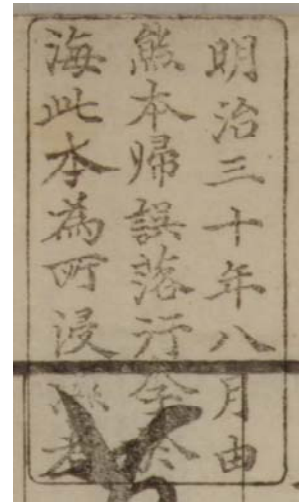 明治三十年八月由
熊本帰誤落行李於
海此本為所浸者